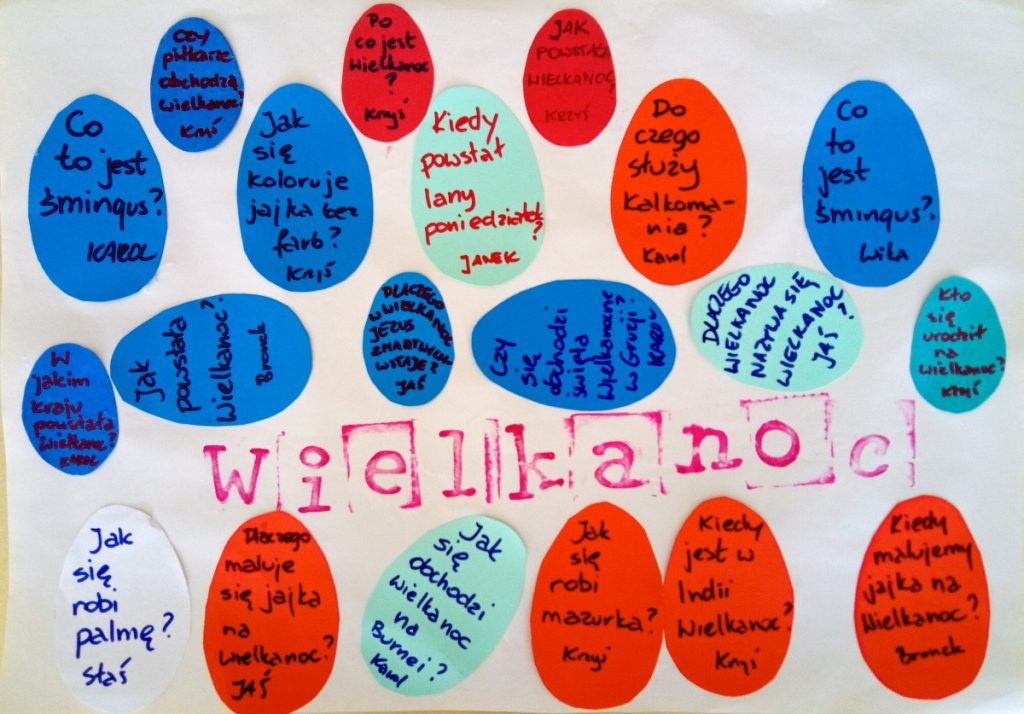 Czy
piłkarze
obchodzą
wielkanoc?
Kryś
Po
co jest
Wielkanoc
?
Kryś
JAK
POWSTAŁA
WIELKANOC
KRZYŚ
Co
to jest
śmingus?
KAROL
Jak
się
koloruje
jajka bez
farb?
Kryś
Kiedy
powstał
lany
poniedziałek
?
JANEK
Do
czego
służy
Kalkoma-
nia?
Karol
Co
to
jest
śmingus?
Wika
W
jakim
kraju
powstała
Wielkanoc?
KAROL
Jak
powstała
Wielkanoc?
Bronek
DLACZEGO
W WIELKANOC
JEZUS
ZMARTWYCH
WSTAJE?
JAŚ
Czy
się
obchodzi
święta
Wielkanocne
w Grecji?
KAROL
DLACZEGO
WIELKANOC
NAZYWA SIĘ
WIELKANOC
?
JAŚ
Kto
się
urodził
na
wielkanoc?
Kryś
Wielkanoc
Jak
się
robi
palmę?
Staś
Dlaczego
maluje
się jajka
na
wielkanoc?
JAŚ
Jak
się
obchodzi
wielkanoc
na
Burnei?
Karol
Jak
się
robi
mazurka?
Kryś
Kiedy
jest w
Indii
Wielkanoc?
Kryś
Kiedy
malujemy
jajka na
Wielkanoc?
Bronek